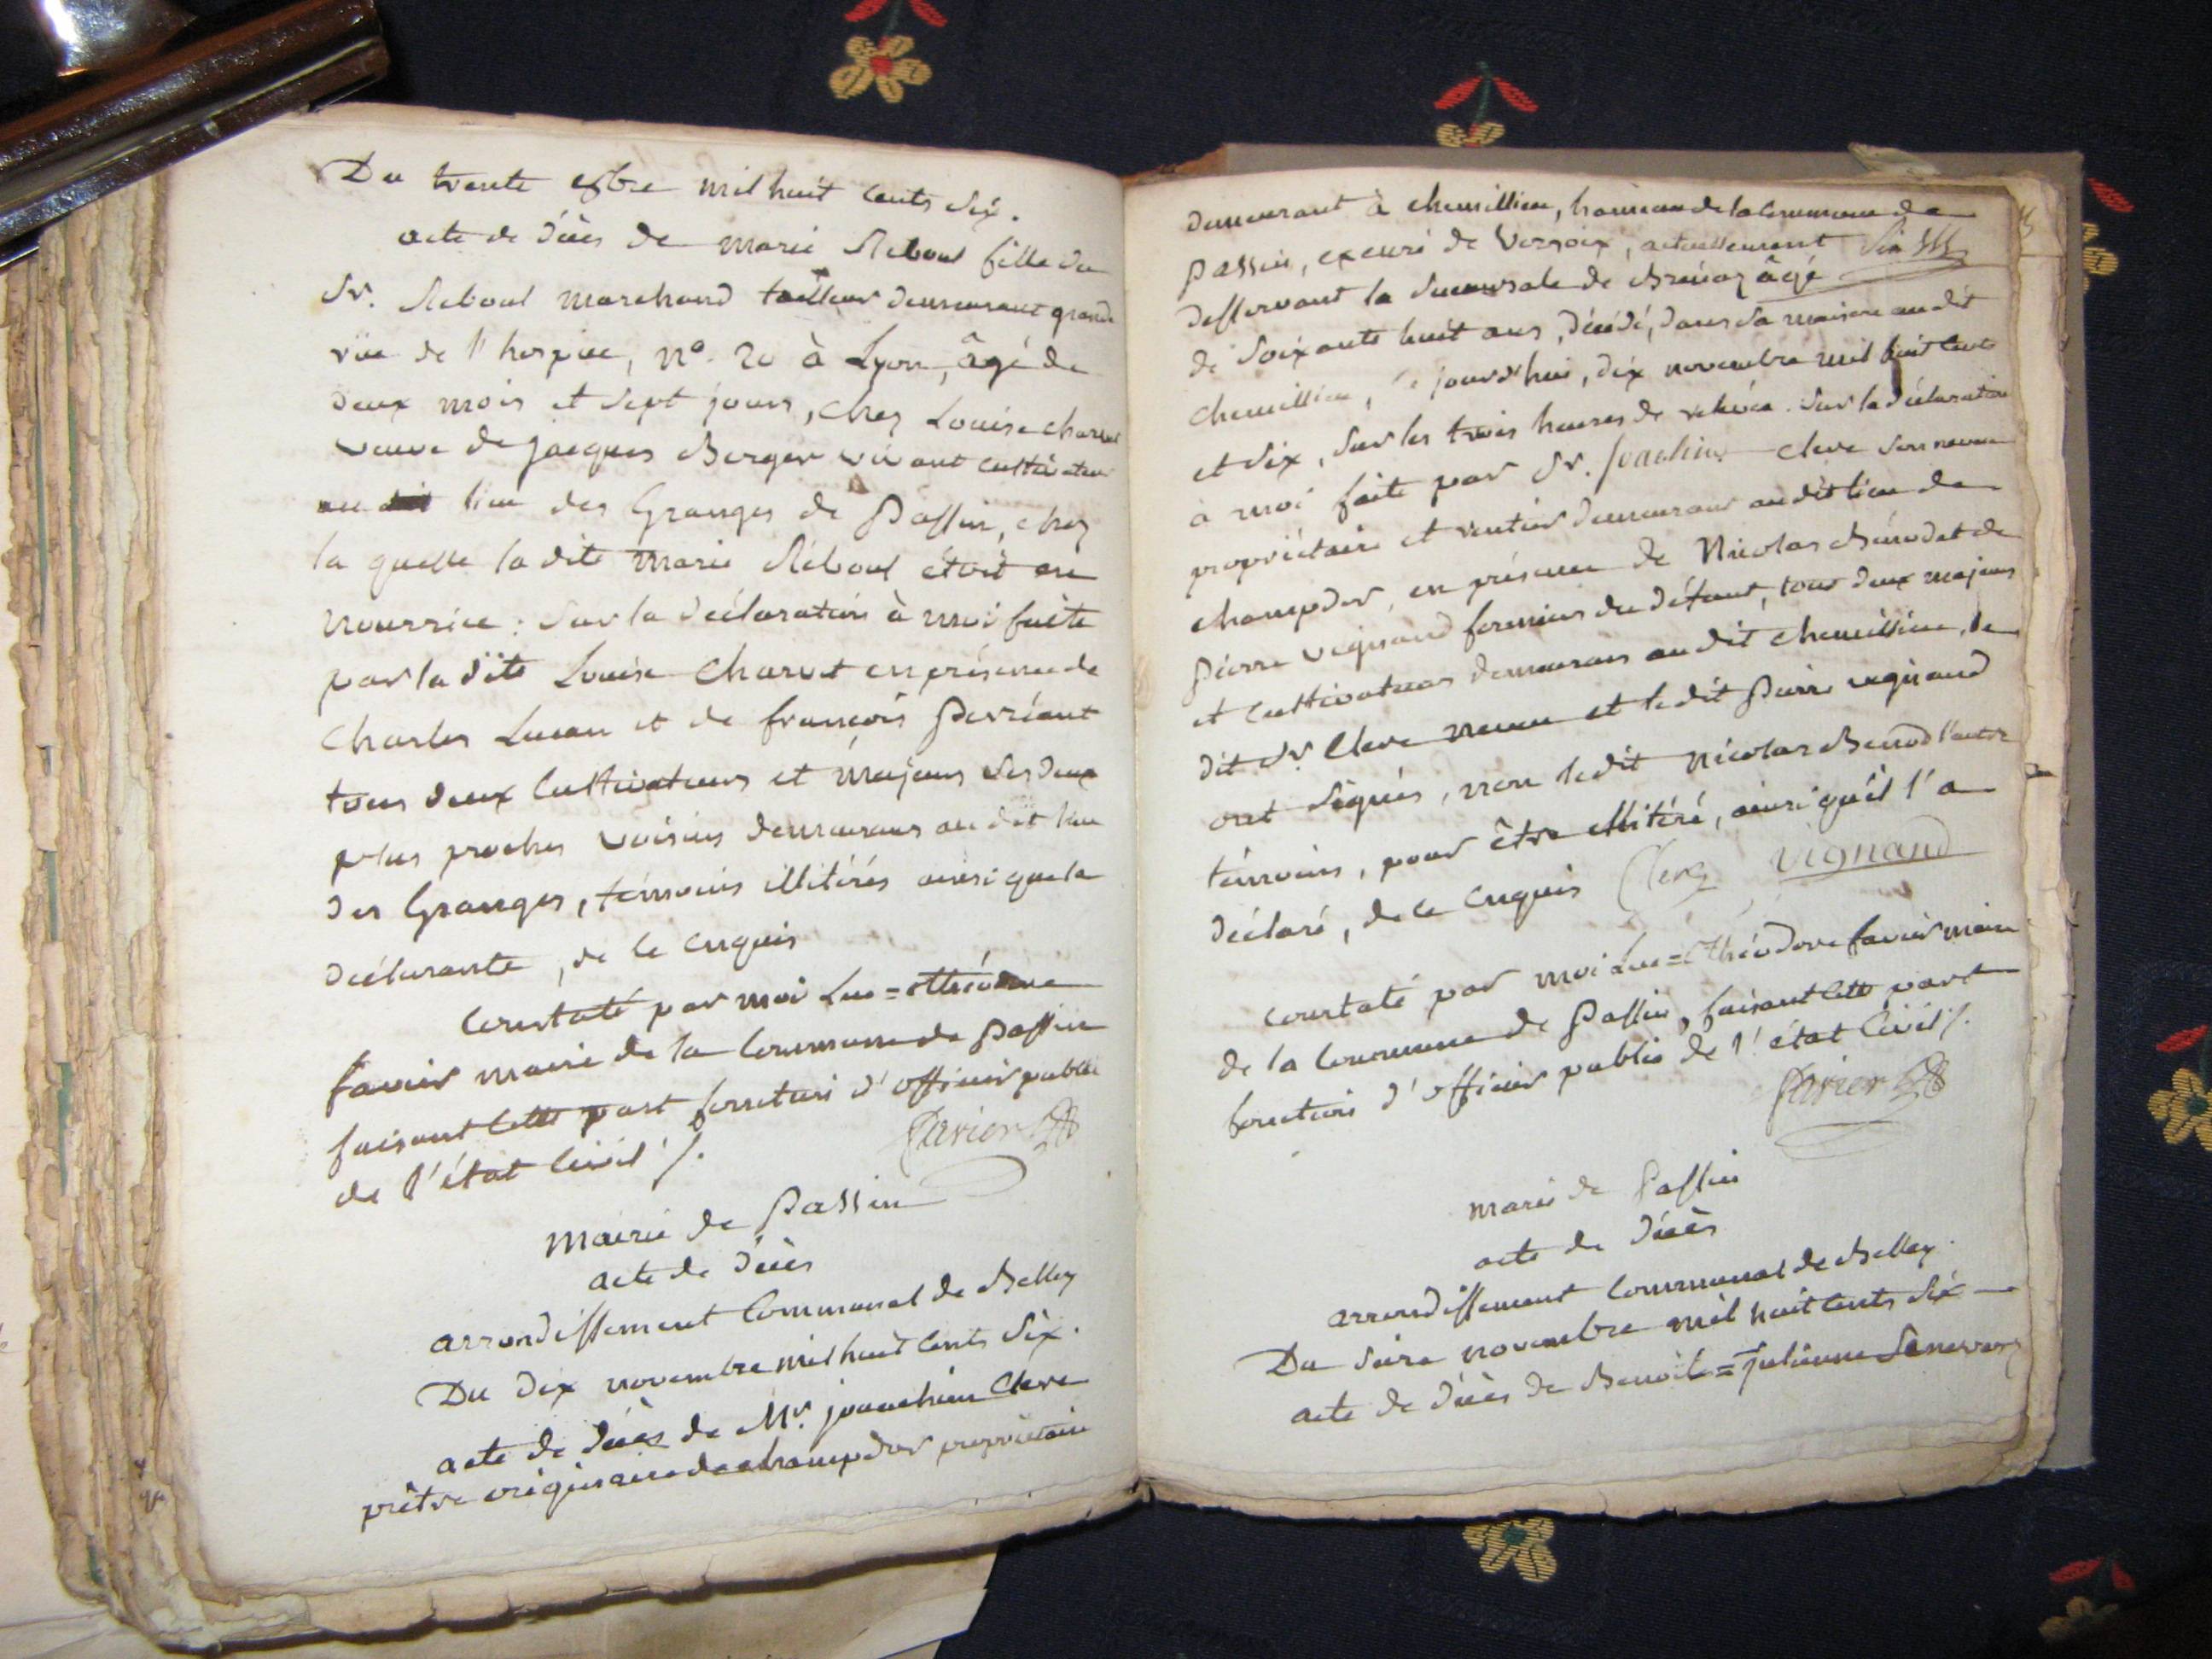 Du trente 8bre mil huit cents six.
acte de décès de marie Reboul fille du
Sr. Reboul marchand tailleur demeurant grande
rüe de l'hospice, n°. 20 à Lyon, âgé de
deux mois et sept jours, chez Louise charvet
veuve de jacques Berger vivant cultivateur
au lieu des Granges de Passin, chez
la quelle la dite Marie Reboul étoit en
nourrice : sur la déclaration à moi faite
par la dite Louise Charvet en présence de
Charles Lucau et de françois Perréaut
tous deux cultivateurs et majeurs ses deux
plus proches voisins demeurans au dit lieu
des Granges, témoins illitérés ainsi que la
déclarante, de ce enquis
Constaté par moi Luc=Théodore
favier maire de la Commune de Passin
faisant cette part fonction d'officier public
de l'état civil ./.
favier
Mairie de Passin
acte de décès
arrondissement Communal de Belley
Du dix novembre mil huit cents six.
acte de décès de Mr. joachim Clerc
prêtre originaire de champdor propriétaire
demeurant à chemillieu, hameau de la Commune de
Passin, excuré de Versoix, actuellement
desservant la succursale de Brénaz âgé
de soixante huit ans, décédé, dans sa maison au dit
chemillieu, ce jourd'hui, dix novembre mil huit cents
et six, sur les trois heures de relevée. sur la déclaration
à moi faite par Sr. Joachim Clerc son neveu
propriétaire et rentier demeurant au dit lieu de
champdor, en présence de Nicolas Bénodet de
Pierre vignand fermiers du défunt, tous deux majeurs
et cultivateurs demeurans au dit chemillieu, le
dit Sr. Clerc neveu et le dit Pierre vignand
ont signés, non le dit Nicolas Benod l'autre
témoins, pour être illitéré, ainsi qu'il l'a
déclaré, de ce enquis Clerc vignand
constaté par moi Luc=Théodore favier maire
de la Commune de Passin, faisant cette part
fonction d'officier public de l'état civil ./.
favier
Marie de Passin
acte de décès
arrondissement Communal de Belley.
Du seize novembre mil huit cents six
acte de décès de Benoite=julienne